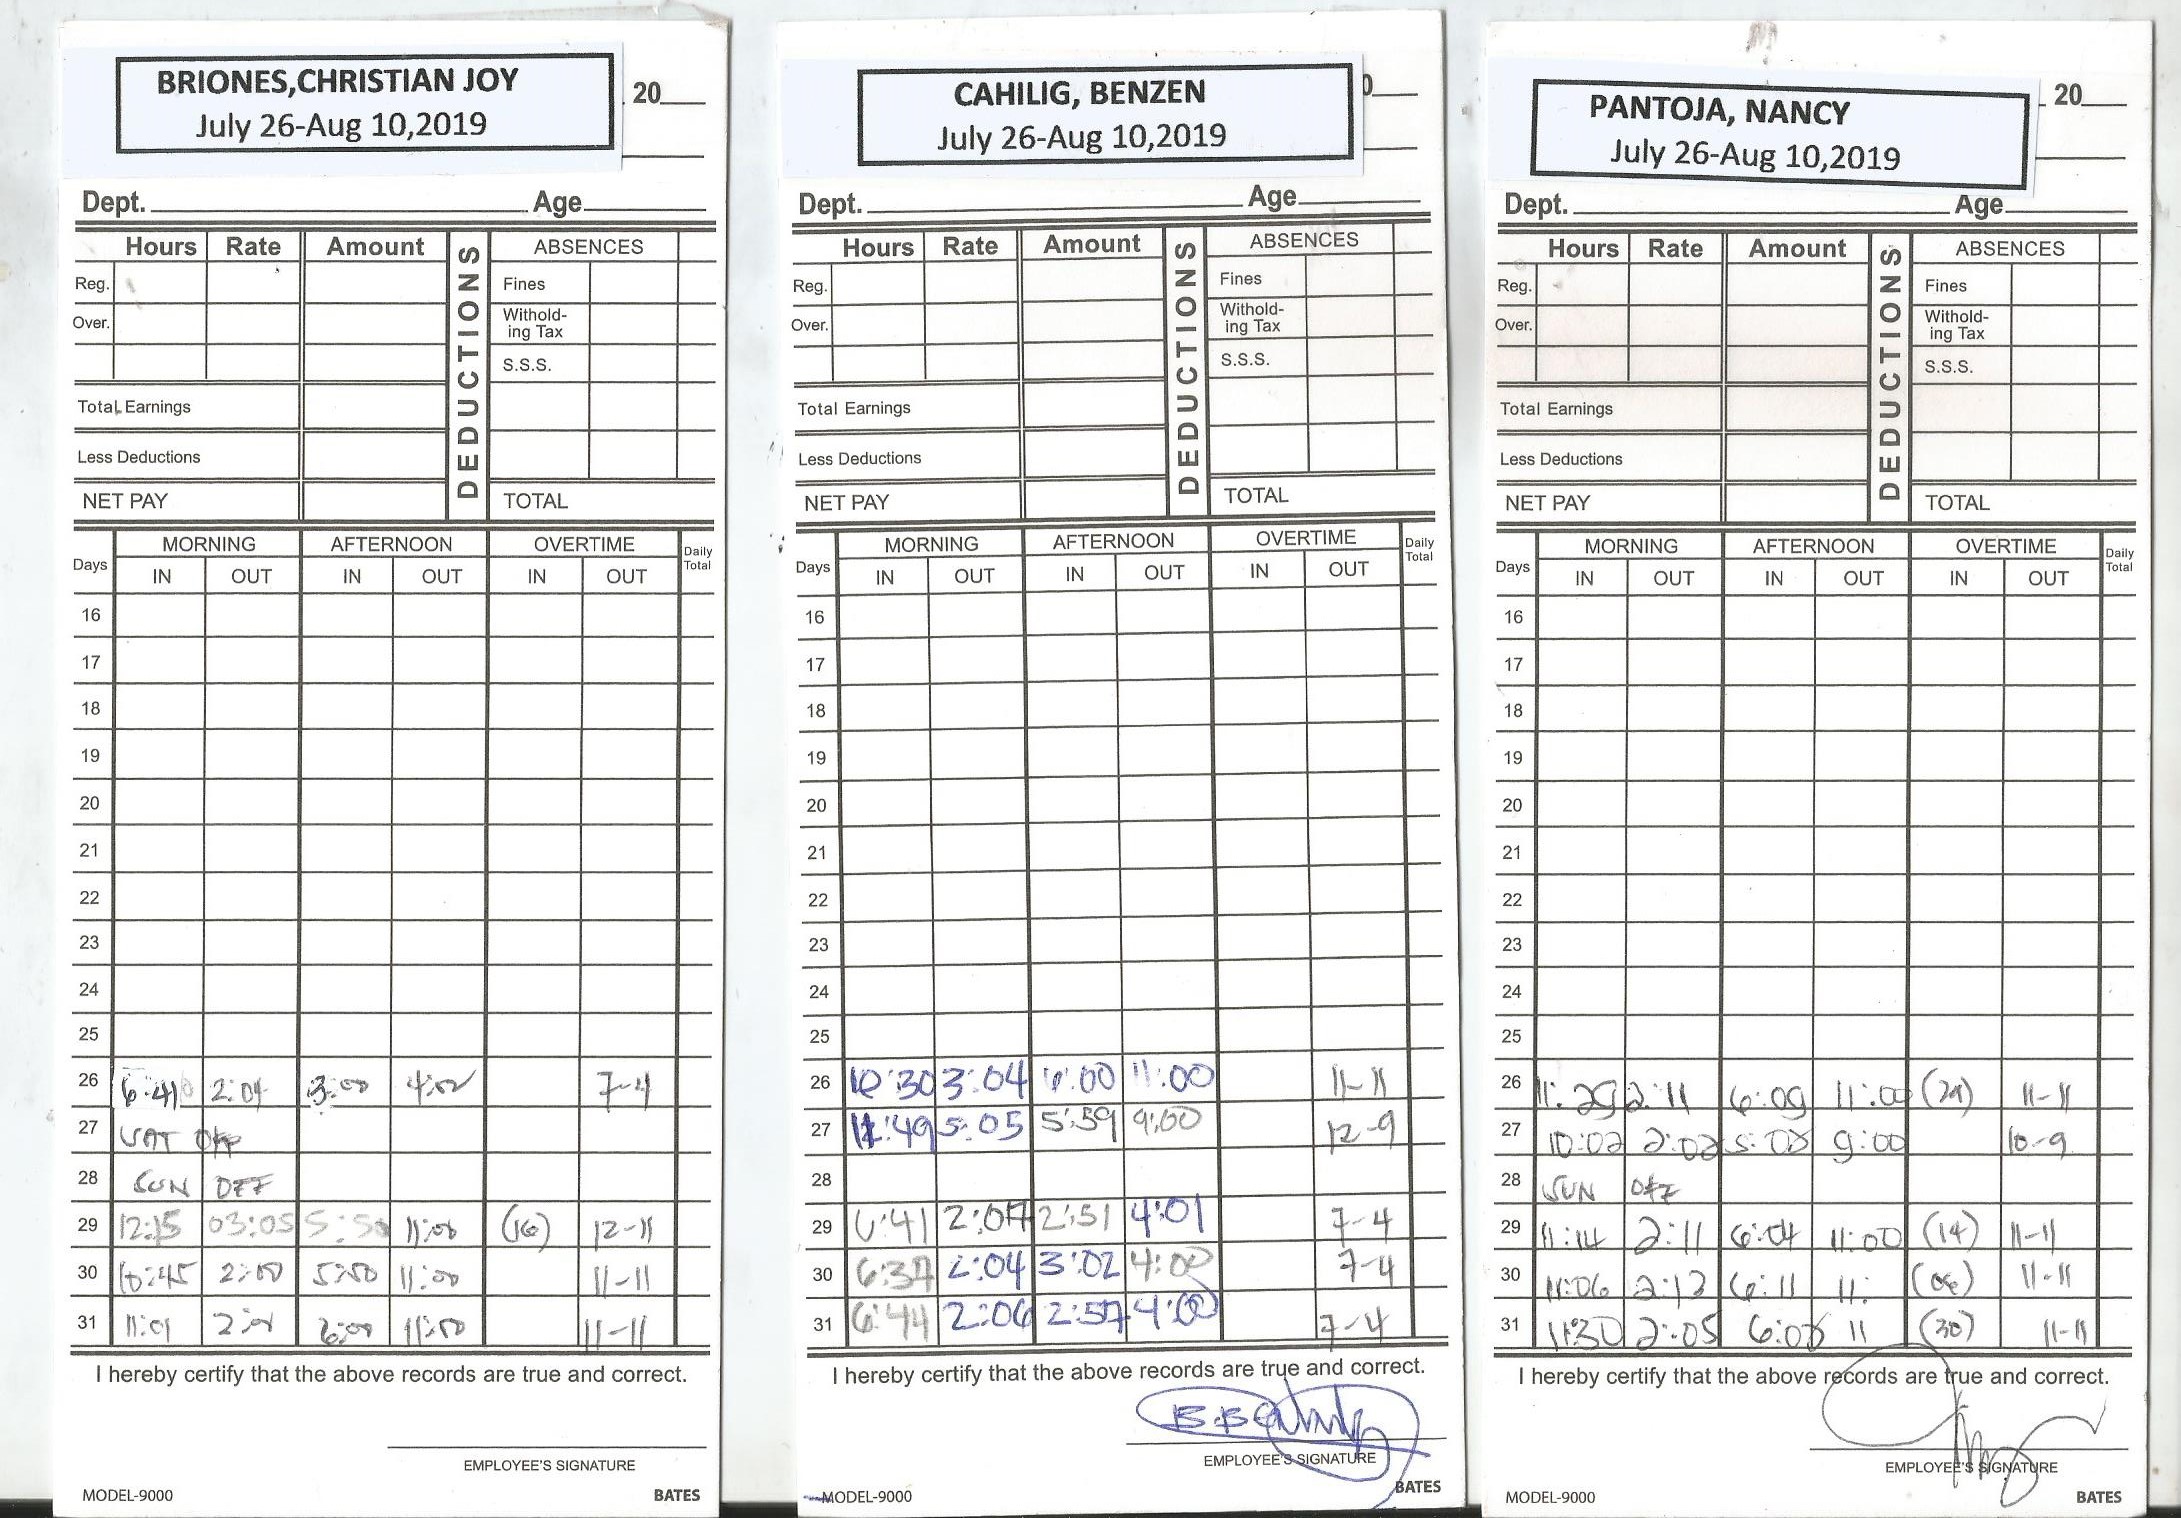 BRIONES,CHRISTIAN JOY
July 26-Aug 10,2019
20
Dept. Age
Hours Rate Amount DEDUCTIONS ABSENCES
Reg. Fines
Over. Withold-
ing Tax
S.S.S.
Total Earnings
Less Deductions
NET PAY TOTAL
Days MORNING AFTERNOON OVERTIME Daily Total
IN OUT IN OUT IN OUT
16
17
18
19
20
21
22
23
24
25
26 6:41 2:04 3:00 4:00 7-4
27 SAT OFF
28 SUN OFF
29 12:15 03:05 5:50 11:00 (16) 12-11
30 10:45 2:00 5:50 11:00 11-11
31 11:01 2:01 6:00 11:00 11-11
I hereby certify that the above records are true and correct.
EMPLOYEE'S SIGNATURE
MODEL-9000 BATES
CAHILIG, BENZEN
July 26-Aug 10,2019
0
Dept. Age
Hours Rate Amount DEDUCTIONS ABSENCES
Reg. Fines
Over. Withold-
ing Tax
S.S.S.
Total Earnings
Less Deductions
NET PAY TOTAL
Days MORNING AFTERNOON OVERTIME Daily Total
IN OUT IN OUT IN OUT
16
17
18
19
20
21
22
23
24
25
26 10:30 3:04 6:00 11:00 11-11
27 11:49 5:05 5:59 9:00 12-9
28
29 6:41 2:07 2:51 4:01 7-4
30 6:37 2:04 3:02 4:00 7-4
31 6:44 2:06 2:57 4:00 7-4
I hereby certify that the above records are true and correct.
EMPLOYEE'S SIGNATURE
MODEL-9000 BATES
PANTOJA, NANCY
July 26-Aug 10,2019
20
Dept. Age
Hours Rate Amount DEDUCTIONS ABSENCES
Reg. Fines
Over. Withold-
ing Tax
S.S.S.
Total Earnings
Less Deductions
NET PAY TOTAL
Days MORNING AFTERNOON OVERTIME Daily Total
IN OUT IN OUT IN OUT
16
17
18
19
20
21
22
23
24
25
26 11:29 2:11 6:09 11:00 (29) 11-11
27 10:02 2:02 5:08 9:00 10-9
28 SUN OFF
29 11:14 2:11 6:04 11:00 (14) 11-11
30 11:06 2:12 6:11 11: (06) 11-11
31 11:30 2:05 6:08 11 (30) 11-11
I hereby certify that the above records are true and correct.
EMPLOYEE'S SIGNATURE
MODEL-9000 BATES